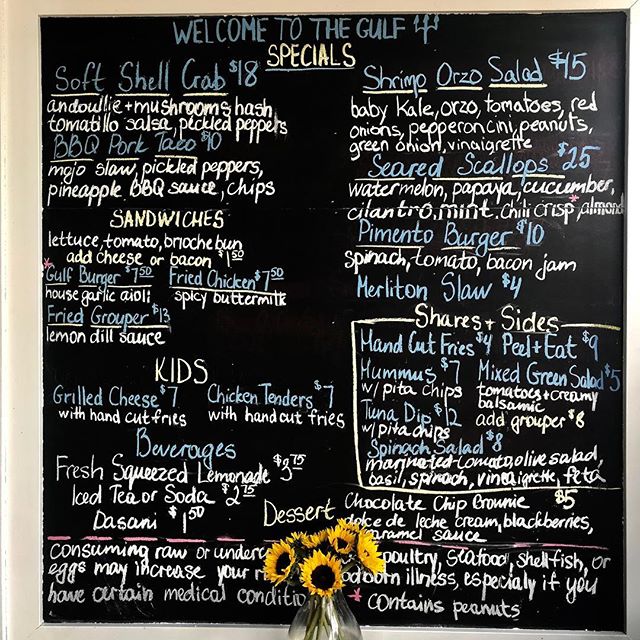 WELCOME TO THE GULF
SPECIALS
Soft Shell Crab $18
andoullie + mushrooms hash
tomatillo salsa, pickled peppers
BBQ Pork Taco $10
mojo slaw, pickled peppers,
pineapple BBQ sauce, chips
SANDWICHES
lettuce, tomato, brioche bun
add cheese or bacon $1.50
*Gulf Burger $7.50 Fried Chicken $7.50
house garlic aioli spicy buttermilk
Fried Grouper $13
lemon dill sauce
KIDS
Grilled Cheese $7 Chicken Tenders $7
with hand cut fries with hand cut fries
Beverages
Fresh Squeezed Lemonade $3.75
Iced Tea or Soda $2.75
Dasani $1.50
Shrimp Orzo Salad $15
baby kale, orzo, tomatoes, red
onions, pepperoncini, peanuts,
green onion, vinaigrette
Seared Scallops $25
watermelon, papaya, cucumber,
cilantro, mint, chili crisp*, almond
Pimento Burger $10
spinach, tomato, bacon jam
Merliton Slaw $4
Shares + Sides
Hand Cut Fries $4 Peel + Eat $9
Hummus $7 Mixed Green Salad $5
w/ pita chips tomatoes + creamy
balsamic
Tuna Dip $12 add grouper $8
w/ pita chips
Spinach Salad $8
marinated tomato, olive salad,
basil, spinach, vinaigrette, feta
Dessert Chocolate Chip Brownie $5
dolce de leche cream, blackberries,
caramel sauce
consuming raw or underc poultry, seafood, shellfish, or
eggs may increase your ri odborn illness, especialy if you
have certain medical conditio * contains peanuts